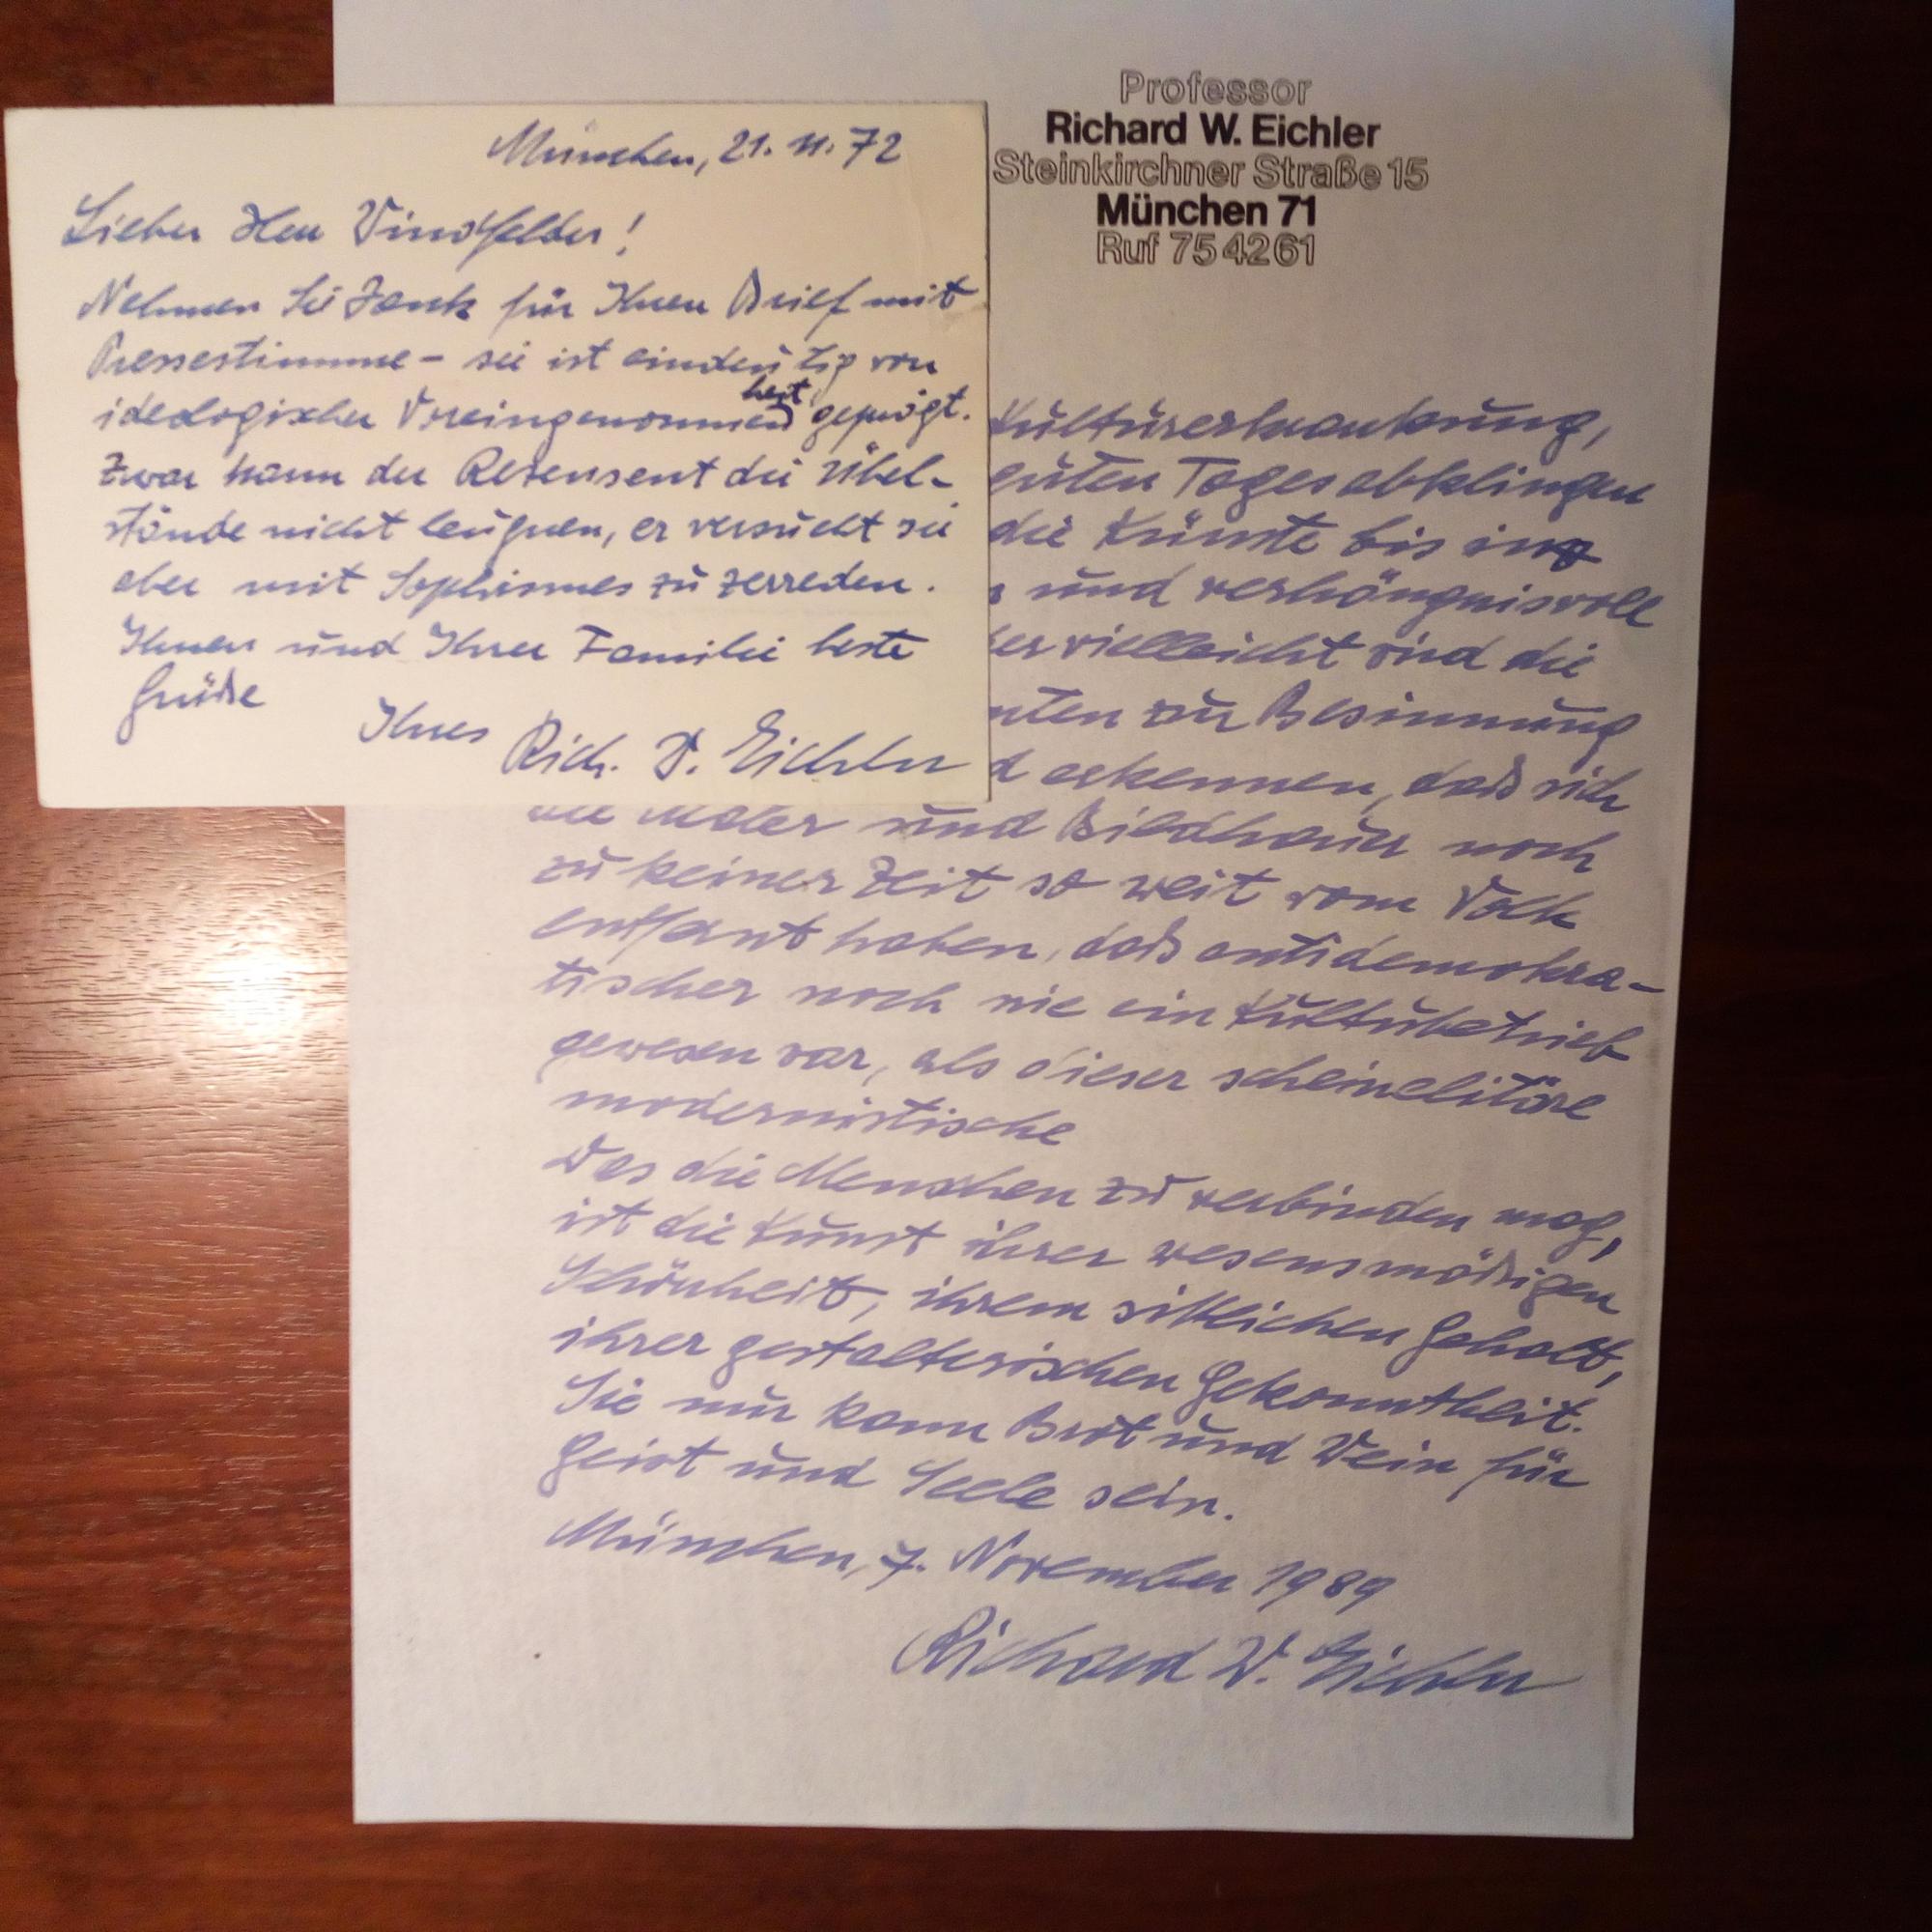 München, 21. 11. 72
Lieber Herr Windfelder!
Nehmen Sie Dank für Ihren Brief mit
Pressestimme – sie ist eindeutig von
ideologischer Voreingenommenheit geprägt.
Zwar kann der Rezensent die Übel-
stände nicht leugnen, er versucht sie
aber mit Sophismes zu zerreden.
Ihnen und Ihrer Familie beste
Grüße
Ihres Rich. W. Eichler
Professor
Richard W. Eichler
Steinkirchner Straße 15
München 71
Ruf 75 42 61
Kulturerkrankung,
guten Tages abklingen
die Künste bis ins
und verhängnisvoll
vielleicht sind die
zur Besinnung
erkennen, daß sich
die Maler und Bildhauer noch
zu keiner Zeit so weit vom Volk
entfernt haben, daß antidemokra-
tischer noch nie ein Kulturbetrieb
gewesen war, als dieser scheinelitäre
modernistische
Was die Menschen zu verbinden mag,
ist die Kunst ihrer wesensmäßigen
Schönheit, ihrem sittlichen Gehalt,
ihrer gestalterischen Gekonntheit.
Sie nur kann Brot und Wein für
Geist und Seele sein.
München, 7. November 1989
Richard W. Eichler